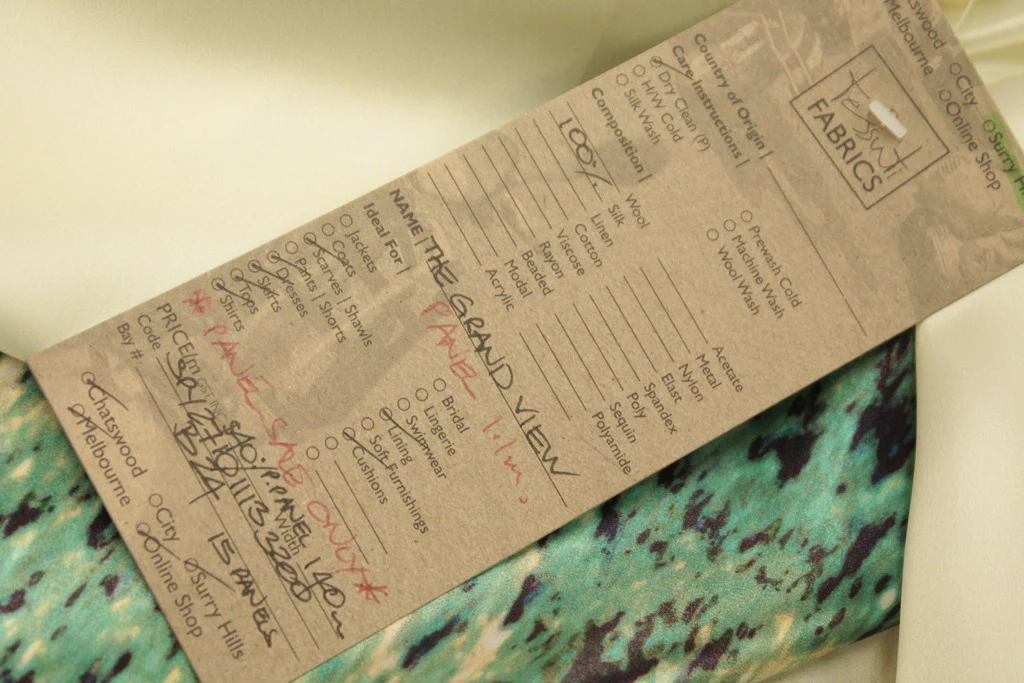 Tessuti
FABRICS
Country of Origin |
Care Instructions |
Dry Clean (P)
H/W Cold
Silk Wash
Prewash Cold
Machine Wash
Wool Wash
Composition |
Wool
100% Silk
Linen
Cotton
Viscose
Rayon
Beaded
Modal
Acrylic
Acetate
Metal
Nylon
Elast
Spandex
Poly
Sequin
Polyamide
NAME | THE GRAND VIEW
PANEL 1.1m.
Ideal For |
Jackets
Coats
Scarves | Shawls
Pants | Shorts
Dresses
Skirts
Tops
Shirts
Bridal
Lingerie
Swimwear
Lining
Soft Furnishings
Cushions
* PANEL SALE ONLY *
PRICE/m
PANEL
Width 140
Code
Bay # B24 15 PANELS
Chatswood
City
Surry Hills
Melbourne
Online Shop
City
Surry H
Melbourne
Online Shop